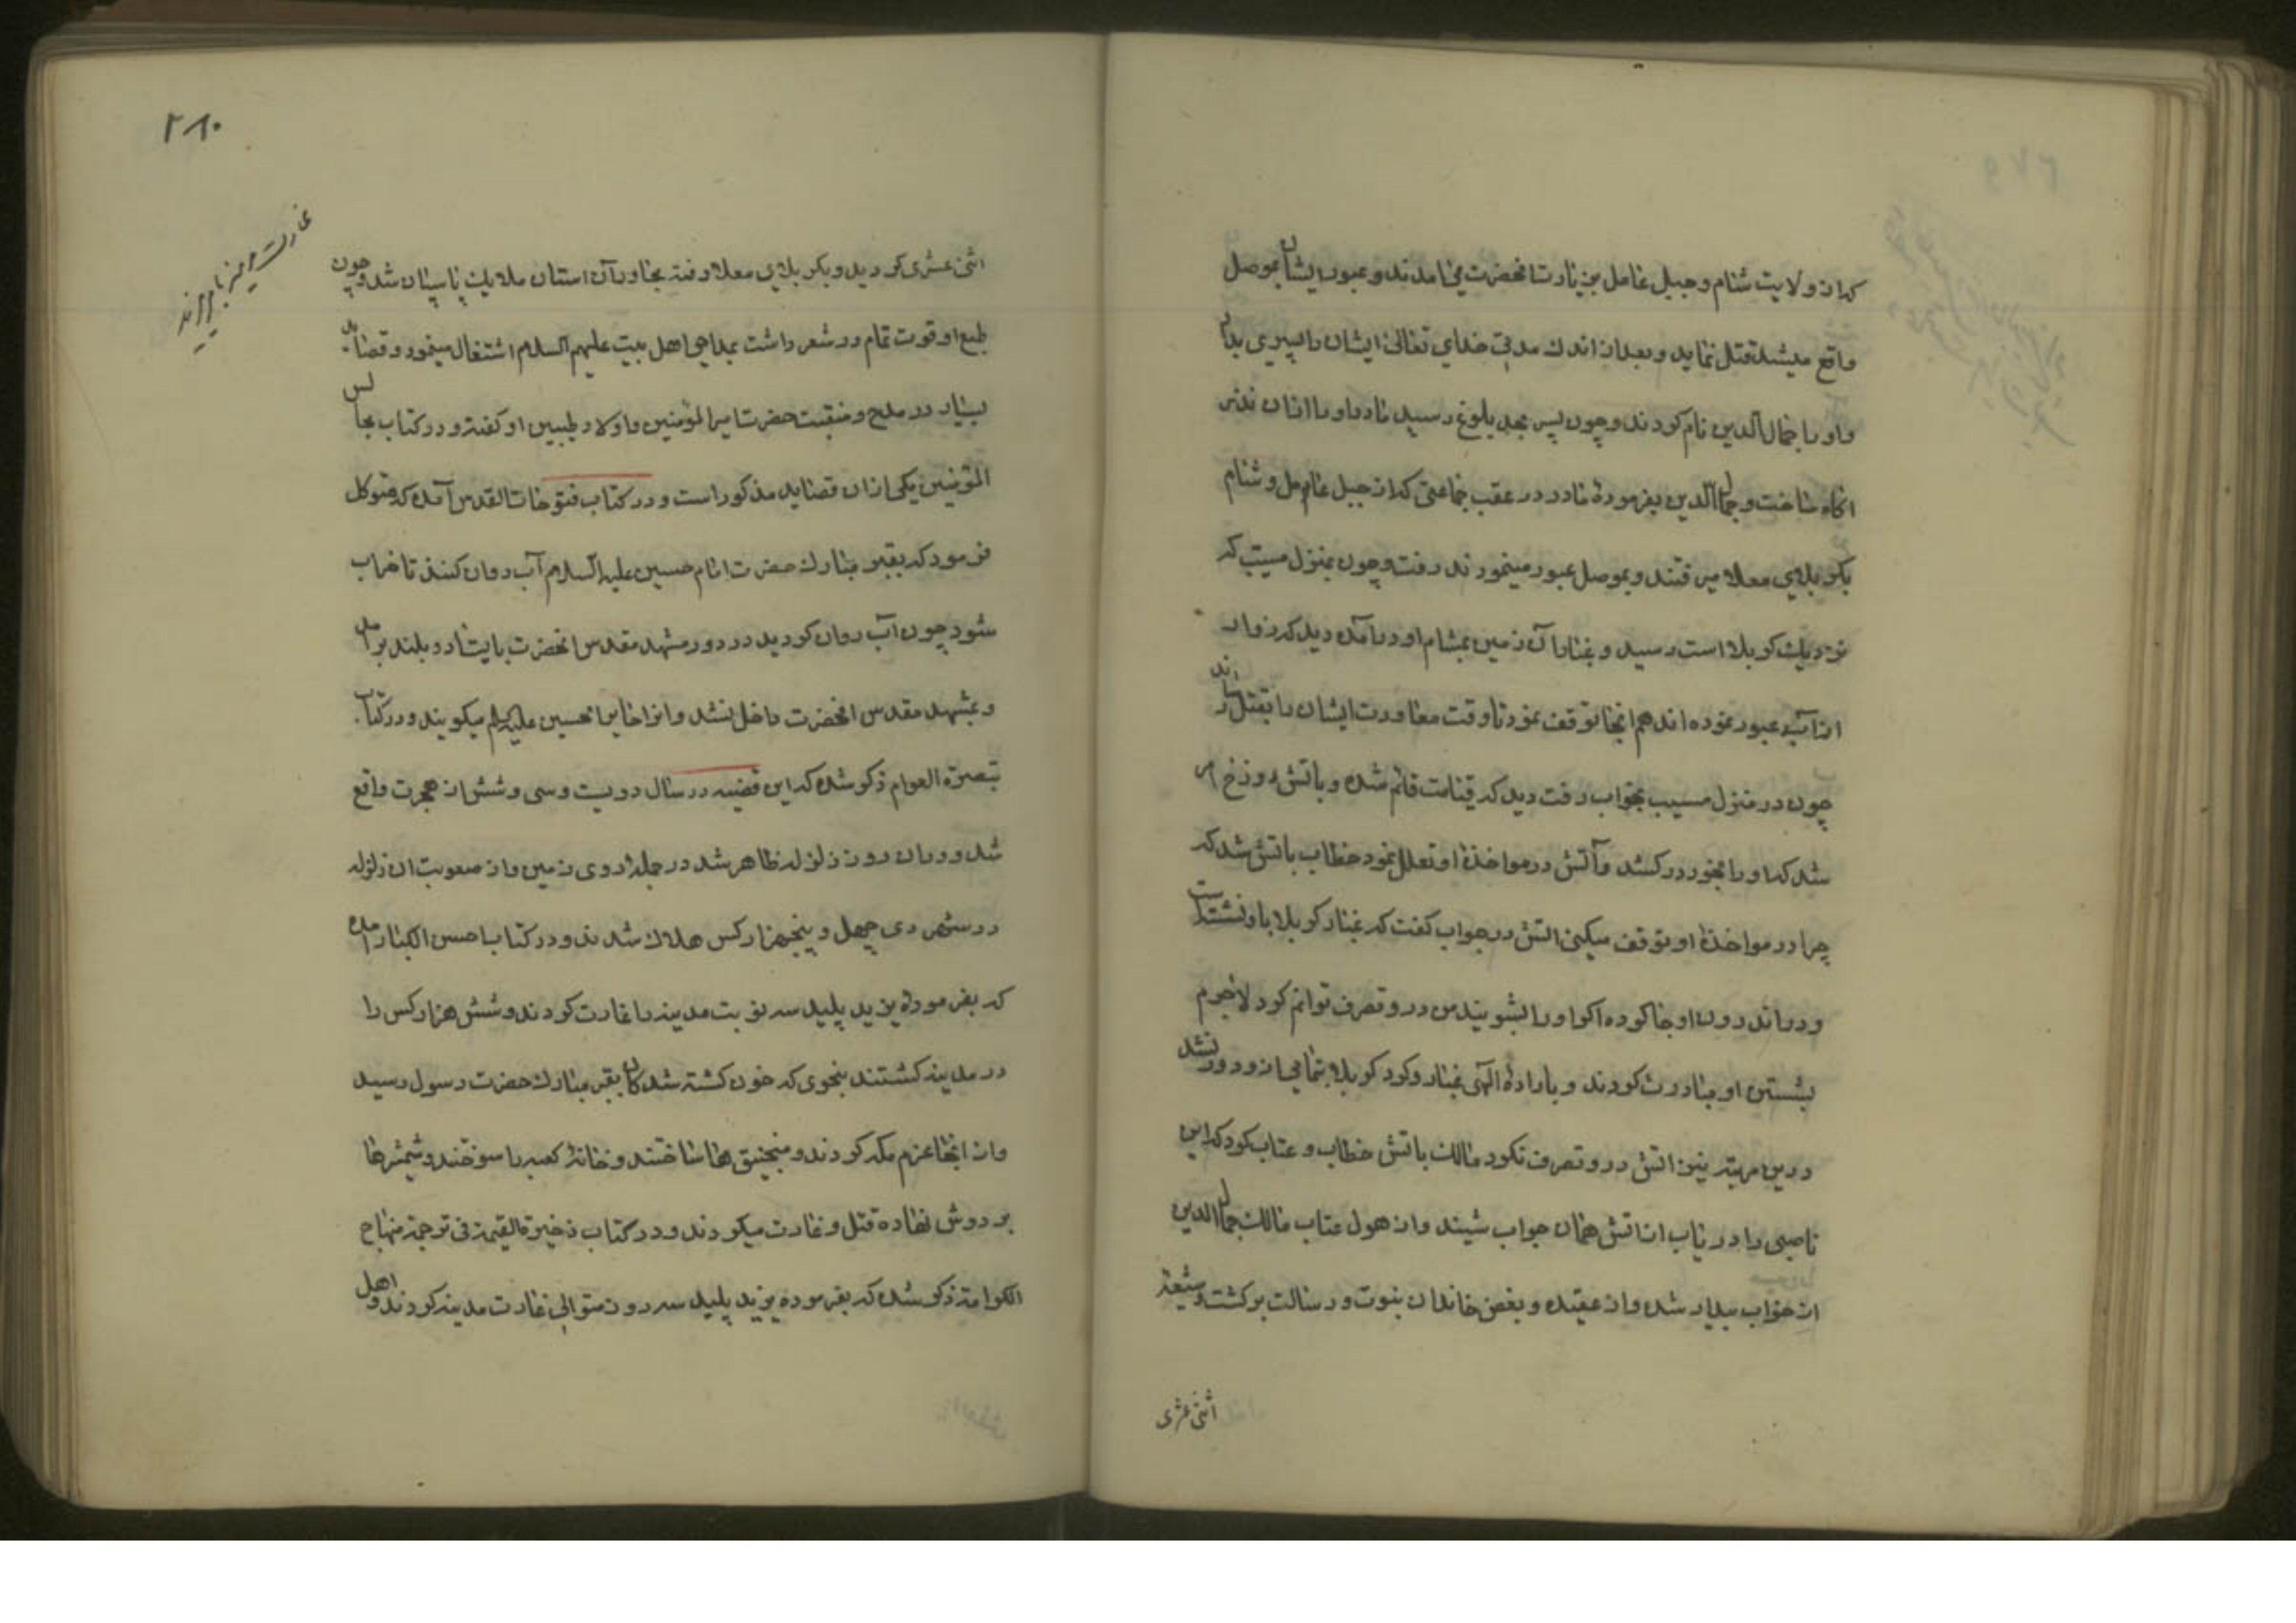 که از ولایت شام و جبل عامل بزیارت انحضرت می امدند و عبور ایشان بموصل
واقع میشد قتل نماید و بعد از اندک مدتی خدای تعالی ایشان را پسری بداد
و او را جمال الدین نام کردند و چون پسر بحد بلوغ رسید مادر او را از ان نذر
اکاه ساخت و جمال الدین بفرمودهٔ مادر در عقب جماعتی که از جبل عامل و شام
بکربلای معلا میرفتند و بموصل عبور مینمودند رفت و چون بمنزل مسیب که
نزدیک کربلا است رسید و غبار آن زمین بمشام او درامد دید که زوار
از آب عبور نموده اند هم انجا توقف نمود تا وقت معاودت ایشان را بقتل رساند
چون در منزل مسیب بخواب رفت دید که قیامت قائم شده و باتش دوزخ امر
شد که او را بخود در کشد و آتش در مواخذهٔ او تعلل نمود خطاب باتش شد که
چرا در مواخذهٔ او توقف میکنی اتش در جواب کفت که غبار کربلا باو نشسته است
و در اندرون او جا کرده اکر او را بشویند من در و تصرف توانم کرد لاجرم
بشستن او مبادرت کردند و بارادهٔ الهی غبار و کرد کربلا بتمامی از و دور نشد
درین مرتبه نیز اتش در و تصرف نکرد مالک باتش خطاب و عتاب کرد که این
ناصبی را دریاب از اتش همان جواب شنید و از هول عتاب مالک جمال الدین
از خواب بیدار شد و از عقیده و بغض خاندان نبوت و رسالت برکشت و شیعهٔ
اثنی عشری
۲۸۰
اثنی عشری کردید و بکربلای معلا رفته مجاور آن استان ملایک پاسبان شد و چون
طبع او قوت تمام در شعر داشت بمداحی اهل بیت علیهم السلام اشتغال مینمود و قصاید
بسیار در مدح و منقبت حضرت امیر المؤمنین و اولاد طیبین او کفته و در کتاب مجالس
المؤمنین یکی از ان قصاید مذکور است و در کتاب فتوحات القدس آمده که متوکل
فرمود که بقبر مبارک حضرت امام حسین علیه السلام آب روان کنند تا خراب
شود چون آب روان کردید در دور مشهد مقدس انحضرت بایستاد و بلند برامد
و بمشهد مقدس انحضرت داخل نشد و انرا حایر حسین علیه السلم میکویند و در کتاب
تبصرة العوام ذکر شده که این قضیه در سال دویست و سی و شش از هجرت واقع
شد و در ان روز زلزله ظاهر شد در جمله روی زمین و از صعوبت ان زلزله
در شهر ری چهل و پنجهزار کس هلاک شدند و در کتاب احسن الکبار امده
که بفرمودهٔ یزید پلید سه نوبت مدینه را غارت کردند و شش هزار کس را
در مدینه کشتند بنحوی که خون کشته شدکان بقبر مبارک حضرت رسول رسید
و از انجا عزم مکه کردند و منجنیق ها ساختند و خانهٔ کعبه را سوختند و شمشیرها
بر دوش نهاده قتل و غارت میکردند و در کتاب ذخیرة القیمة فی ترجمة منهاج
الکرامة ذکر شده که بفرموده یزید پلید سه روز متوالی غارت مدینه کردند و اهل